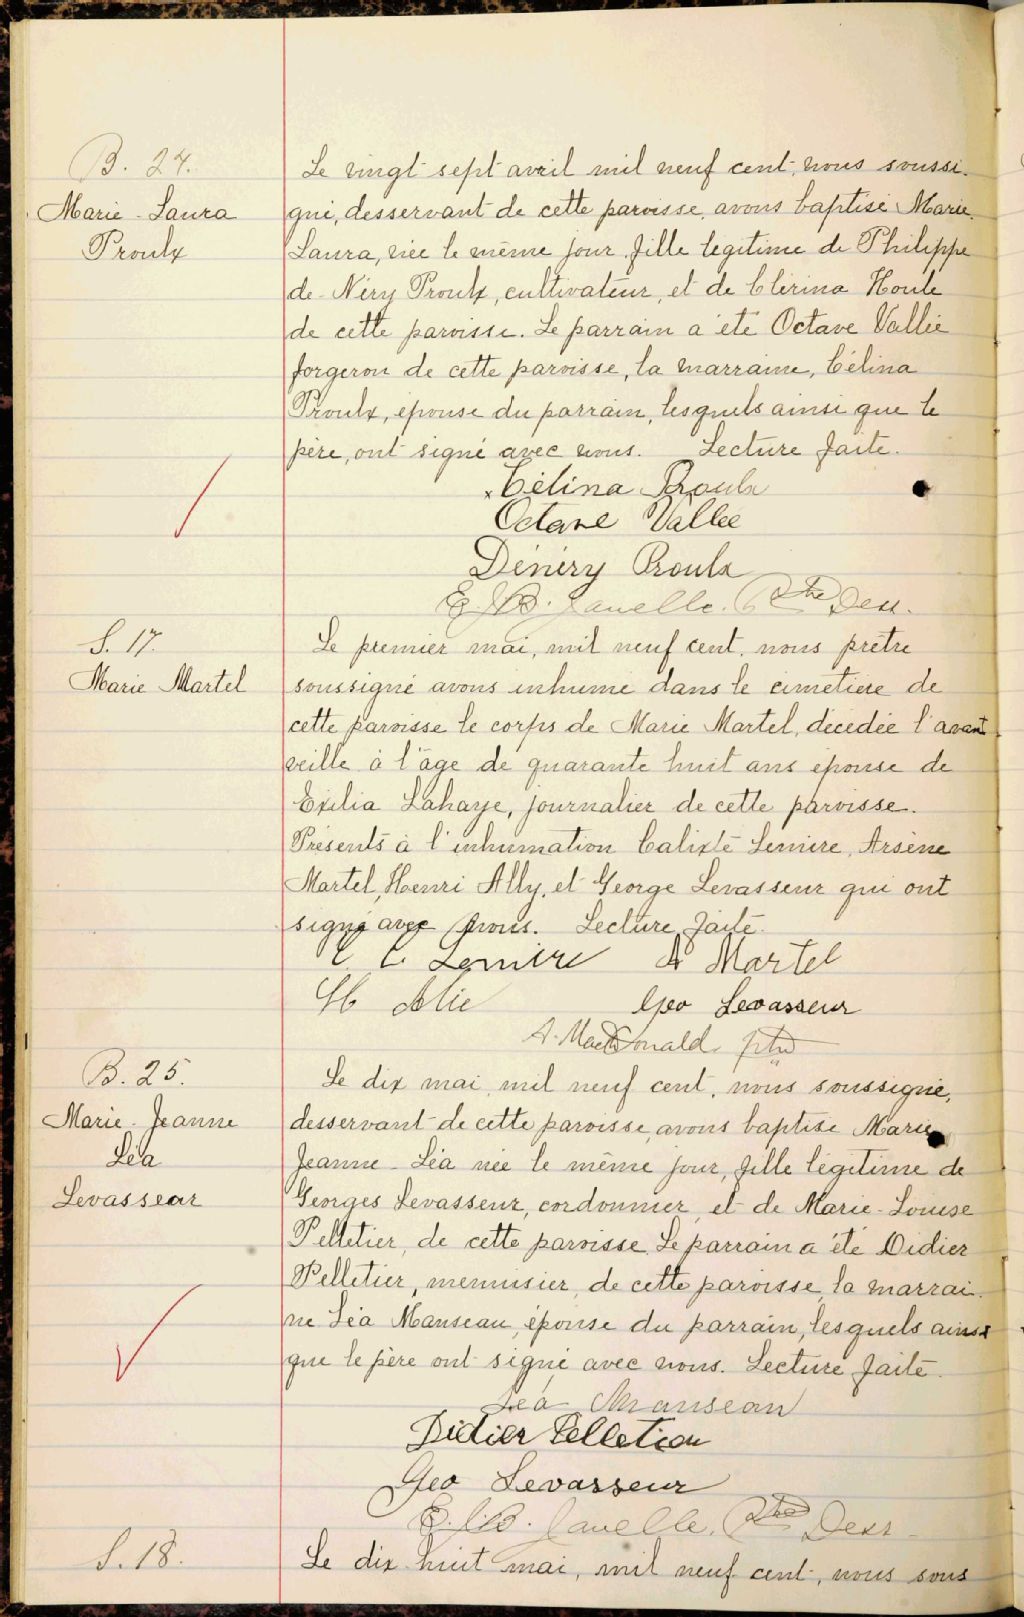 B. 24.
Marie-Laura
Proulx
Le vingt sept avril mil neuf cent, nous soussi-
gné, desservant de cette paroisse, avons baptisé Marie-
Laura, née le même jour, fille légitime de Philippe
de-Néry Proulx, cultivateur, et de Clérina Houle
de cette paroisse. Le parrain a été Octave Vallée
forgeron de cette paroisse, la marraine, Célina
Proulx, épouse du parrain, lesquels ainsi que le
père, ont signé avec nous. Lecture faite.
x Célina Proulx
Octave Vallée
Dénéry Proulx
E. J. B. Janelle. Ptre Dess.
S. 17.
Marie Martel
Le premier mai, mil neuf cent, nous prêtre
soussigné avons inhumé dans le cimetière de
cette paroisse le corps de Marie Martel, décédée l'avant
veille à l'âge de quarante huit ans épouse de
Exilia Lahaye, journalier de cette paroisse.
Présents à l'inhumation Calixte Lemire, Arsène
Martel, Henri Ally, et George Levasseur qui ont
signé avec nous. Lecture faite.
C C Lemire A Martel
H Alie Geo Levasseur
A. MacDonald ptre
B. 25.
Marie-Jeanne
Léa
Levasseur
Le dix mai, mil neuf cent, nous soussigné,
desservant de cette paroisse, avons baptisé Marie
Jeanne-Léa née le même jour, fille légitime de
Georges Levasseur, cordonnier, et de Marie-Louise
Pelletier, de cette paroisse. Le parrain a été Didier
Pelletier, menuisier, de cette paroisse, la marrai-
ne Léa Manseau, épouse du parrain, lesquels ainsi
que le père ont signé avec nous. Lecture faite.
Léa Manseau
Didier Pelletier
Geo Levasseur
E. J. B. Janelle. Ptre Dess.
S. 18.
Le dix-huit mai, mil neuf cent, nous sous